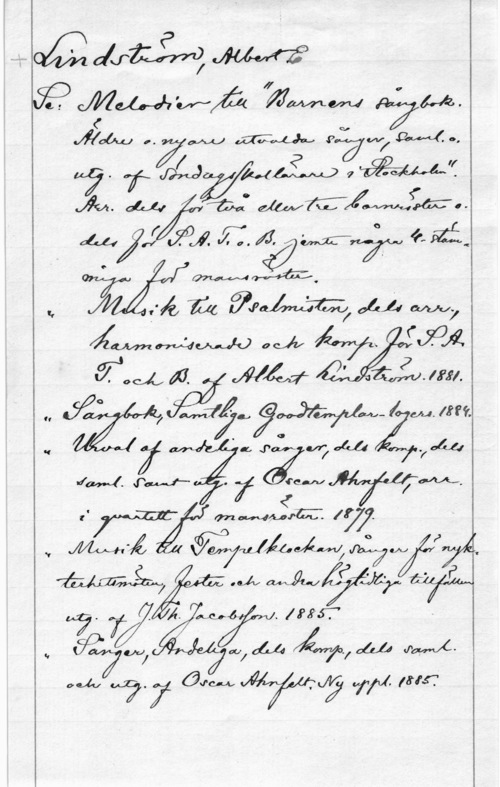 Lindström, Albert E
Se: Melodier till "Barnens sångbok.
Äldre o. nyare utvalda sånger, saml. o.
utg. af Söndagsskollärare i Stockholm".
Arr. dels för två eller tre barnröster o.
dels för S. A. T. o. B. jemte några 4-stäm-
miga för mansröster.
" Musik till Psalmisten, dels arr.,
harmoniserade och komp. för S. A.
T. och B. af Albert Lindström. 1881.
" Sångbok, Samtliga Goodtemplar-logers. 1884.
" Urval af andeliga sånger, dels komp., dels
saml. samt utg. af Oscar Ahnfelt, arr.
i qvartett för mansröster. 1879.
" Musik till Tempelklockan, sånger för nyk-
terhetsmöten, fester och andra högtidliga tillfällen
utg. af J. Th. Jacobsson. 1885.
" Sånger, Andeliga, dels komp, dels saml.
och utg. af Oscar Ahnfelt. Ny uppl. 1885.